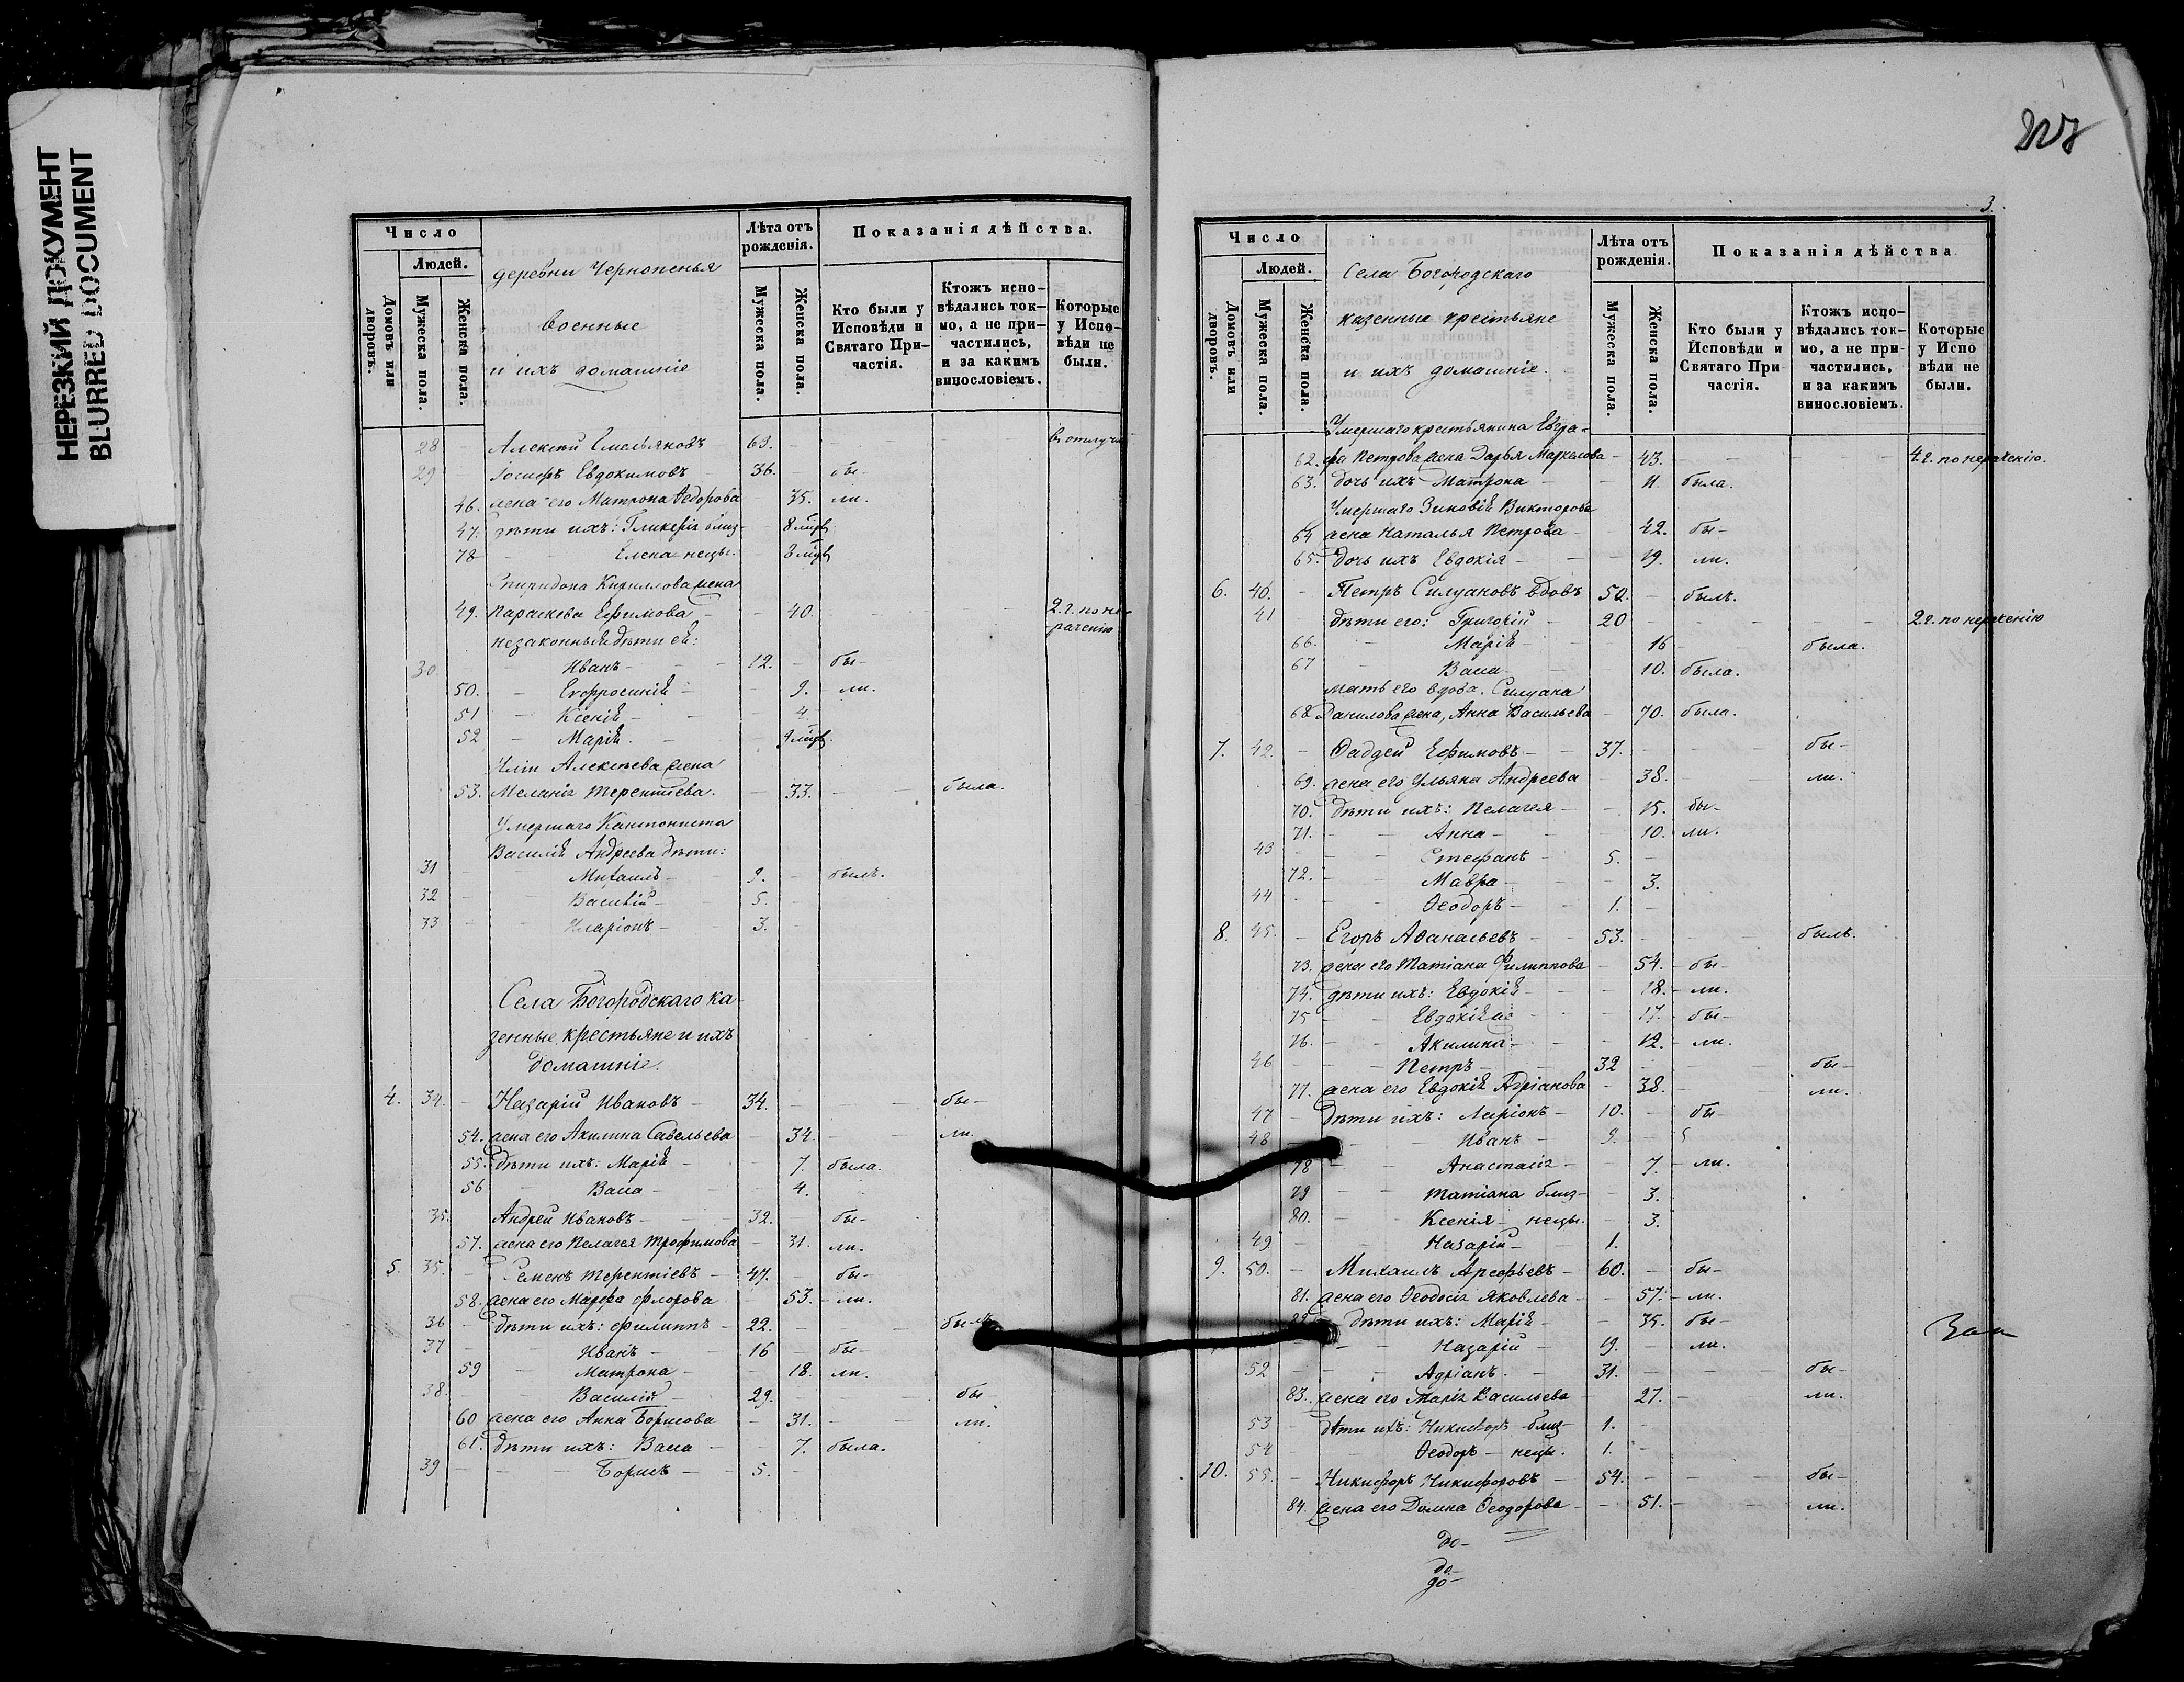 НЕРЕЗКИЙ ДОКУМЕНТ
BLURRED DOCUMENT
Число
Людей.
Домовъ или дворовъ.
Мужеска пола.
Женска пола.
деревни Чернопенья
военные
и ихъ домашніе
Лѣта отъ рожденія.
Мужеска пола.
Женска пола.
Показанія дѣйства.
Кто были у Исповѣди и Святаго При-частія.
Ктожъ испо-вѣдались ток-мо, а не при-частились, и за какимъ винословіемъ.
Которые у Испо-вѣди не были.
28 - Алексѣй Емельяновъ 63. - - въ отлуч
29 - Іосифъ Евдокимовъ 36. бы-
46. жена его Матрона Ѳедорова - 35. ли.
47. дѣти ихъ: Гликерія близ- - 8 мѣсц
78 - Елена нецы. - 8 мѣсц
Спиридона Кириллова жена
49. Параскева Ефимова - 40. - - 2. г. по не-
раченію
незаконныя дѣти ея:
30 - Иванъ - 12. - бы-
50. - Евфросинія - 9. - ли.
51 - Ксенія - 4.
52 - Марія - 9 мѣсц.
Иліи Алексѣева жена
53. Меланія Терентіева. - 33. - была.
Умершаго Кантониста
Василія Андреева дѣти:
31 - Михаилъ - 9. - былъ.
32 - Василій - 5. -
33 - Иларіонъ - 3. -
Села Богородскаго ка-
зенные крестьяне и ихъ
домашніе.
4. 34. - Назарій Ивановъ - 34. - - бы-
54. жена его Акилина Савельева - 34. - ли.
55. дѣти ихъ: Марія - 7. была.
56 - Васса - 4.
35. Андрей Ивановъ - 32. - бы-
57. жена его Пелагея Трофимова - 31. ли.
5. 35. - Семенъ Терентіевъ - 47. - бы-
58. жена его Марфа Флорова 53. - ли.
36 - дѣти ихъ: Филиппъ - 22. - - былъ
37 - Иванъ - 16 - бы-
59 - Матрона - 18. ли.
38. - Василій - 29. - бы-
60 жена его Анна Борисова - 31. - ли.
61. дѣти ихъ: Васса - 7. была.
39 - Борисъ - 5. -
3.
Число
Людей.
Домовъ или дворовъ.
Мужеска пола.
Женска пола.
Села Богородскаго
казенныя крестьяне
и ихъ домашніе.
Лѣта отъ рожденія.
Мужеска пола.
Женска пола.
Показанія дѣйства
Кто были у Исповѣди и Святаго При частія.
Ктожъ испо-вѣдались ток-мо, а не при-частились, и за какимъ винословіемъ.
Которые у Испо вѣди не были.
Умершаго крестьянина Евгра-
62. фа Петрова жена Дарья Маркелова - 43. - - - 4. г. по нераченію.
63. дочь ихъ Матрона - 11. была.
Умершаго Зиновія Викторова
64 жена Наталья Петрова - 42. бы-
65. дочь ихъ Евдокія - 19. ли.
6. 40. - Петръ Силуановъ вдовъ 50. - былъ.
41 дѣти его: Григорій - 20 - - - 2 г. по нераченію
66. - Марія - 16 - была.
67 - Васса - 10. была.
мать его вдова, Силуана
68 Данилова жена, Анна Васильева - 70. была.
7. 42. - Фаддей Ефимовъ - 37. - - бы-
69. жена его Ульяна Андреева - 38. - ли.
70. дѣти ихъ: Пелагея - 15. бы-
71. - Анна - 10. ли.
43 - Стефанъ - 5. -
72. - Мавра - 3.
44 - Ѳеодоръ - 1. -
8. 45. - Егоръ Аѳанасьевъ - 53. - - былъ.
73. жена его Татіана Филиппова - 54. - бы-
74. дѣти ихъ: Евдокія - 18. - ли.
75 - Евдокія - 17. - бы-
76. - Акилина - 12. - ли.
46 - Петръ - 32 - бы-
77. жена его Евдокія Адріанова - 38. - ли.
47 - дѣти ихъ: Ларіонъ - 10. - бы-
48 - Иванъ - 9. -
78 - Анастасія - 7. - ли.
79 - Татіана близ- - 3.
80. - Ксенія - нецы. - 3.
49 - Назарій - 1.
9. 50. - Михаилъ Арефьевъ - 60. - бы-
81. жена его Ѳеодосія Яковлева - 57. - ли.
82 дѣти ихъ: Марія - 35. бы-
- Назарій - 19. - ли.
52 - Адріанъ - 31. - - бы-
83. жена его Марія Васильева - 27. - ли.
53 - дѣти ихъ: Никифоръ близ- 1. -
54 - Ѳеодоръ - нецы. 1. -
10. 55. - Никифоръ Никифоровъ - 54. - - бы-
84. жена его Домна Ѳеодорова - 51. - ли.
до-
до-
до-